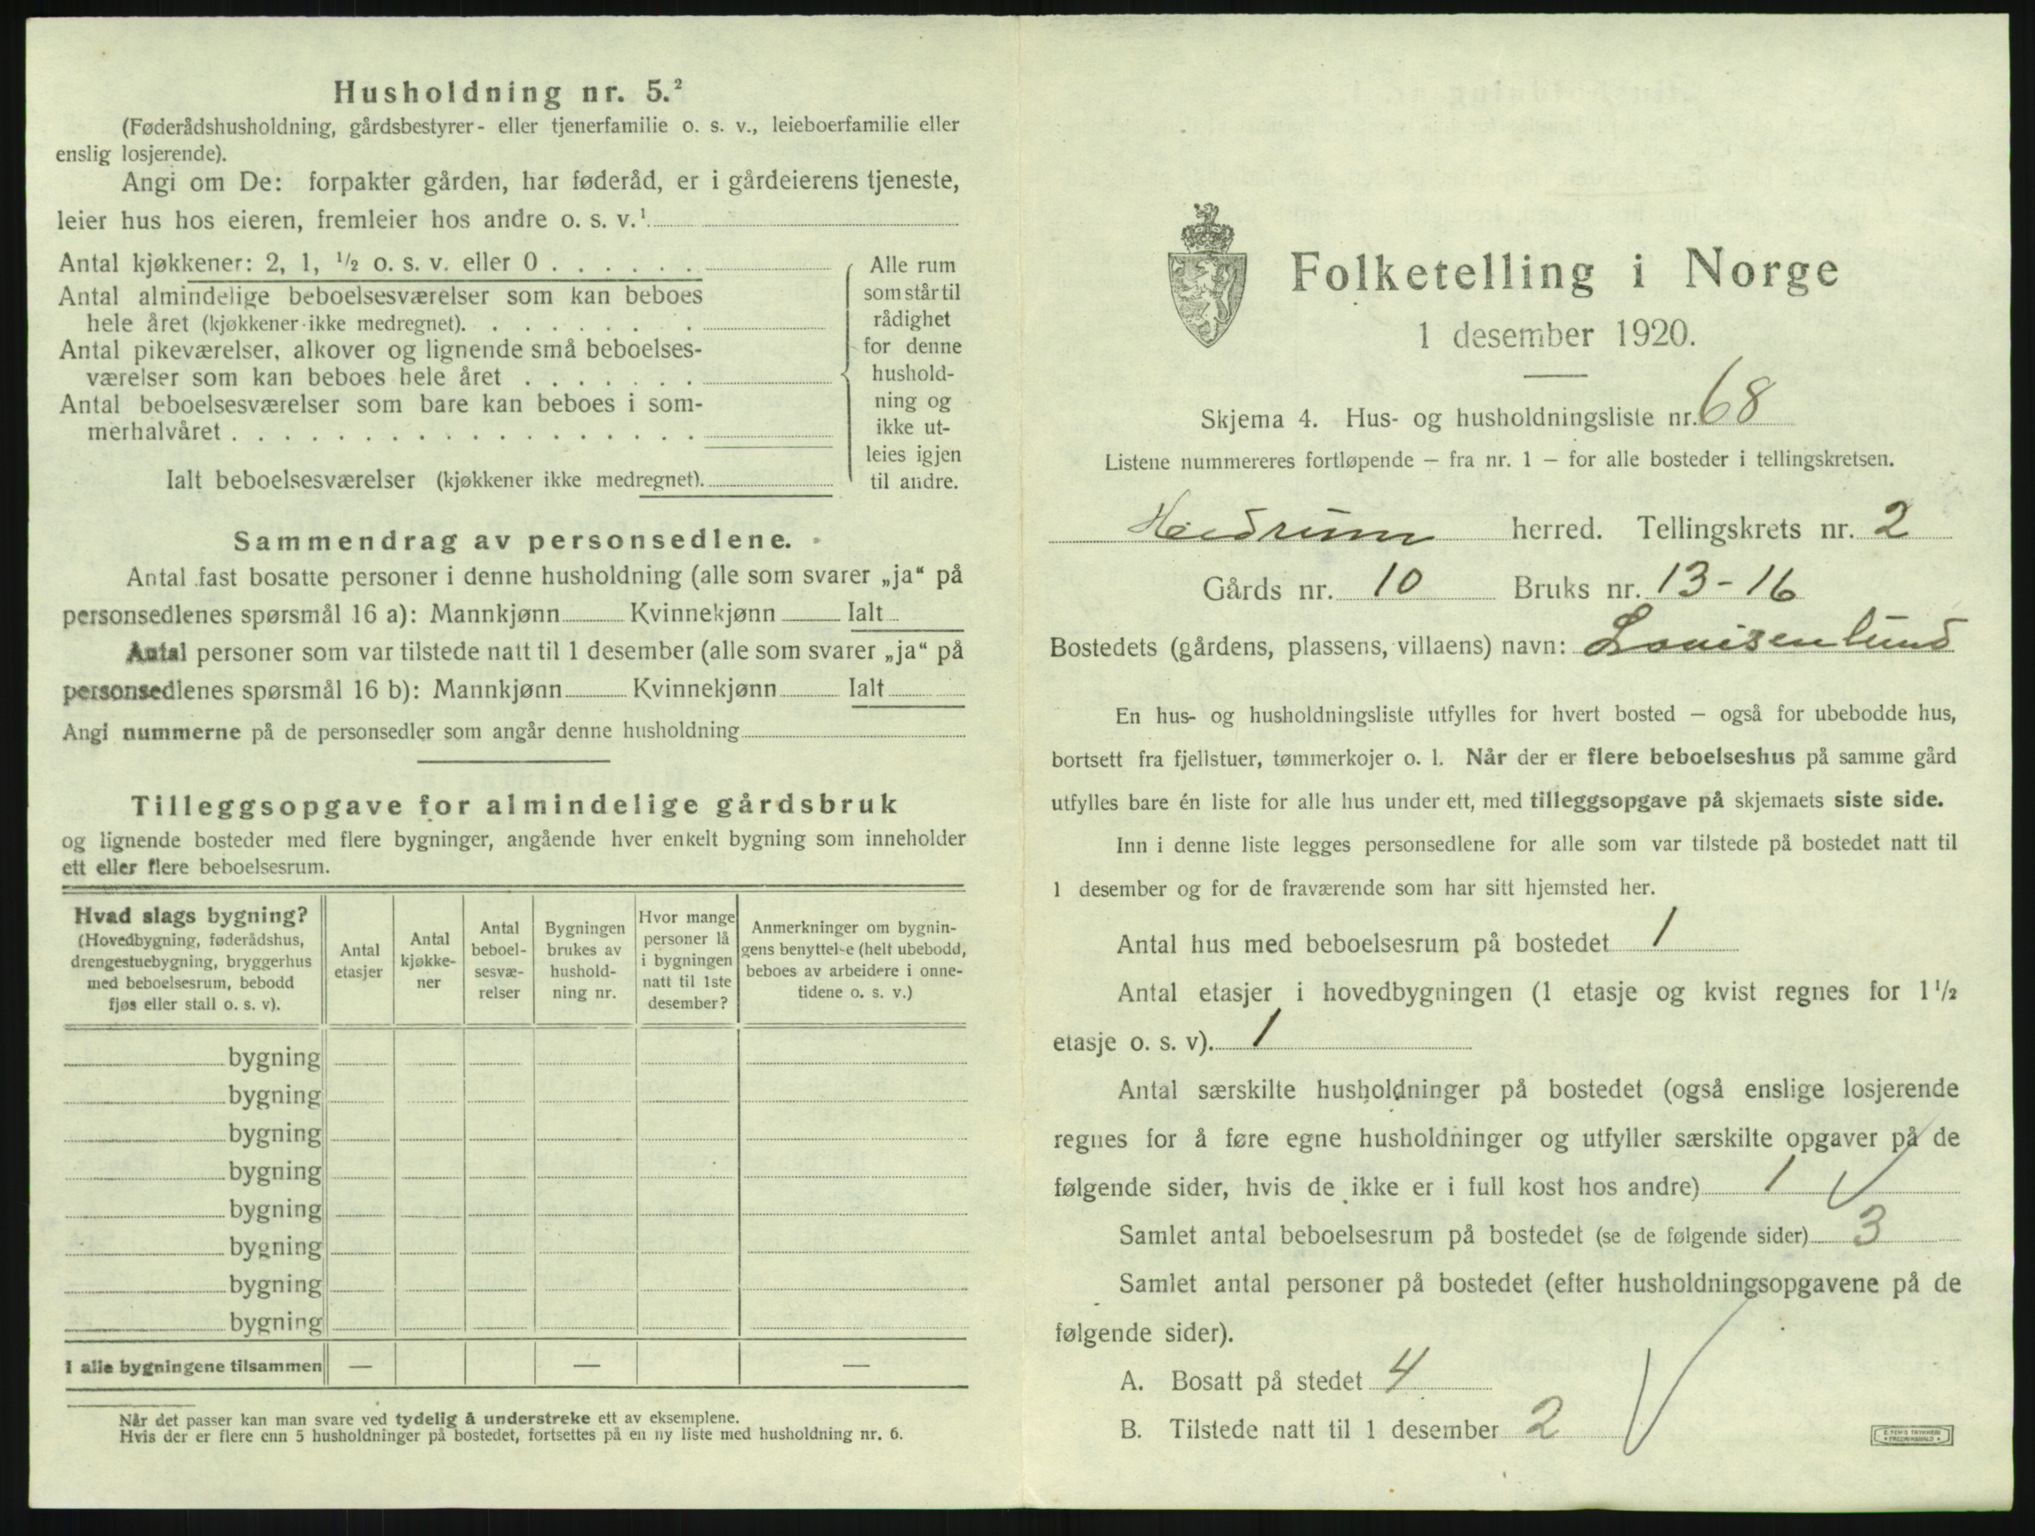 Husholdning nr. 5.²
(Føderådshusholdning, gårdsbestyrer- eller tjenerfamilie o. s. v., leieboerfamilie eller
enslig losjerende).
Angi om De: forpakter gården, har føderåd, er i gårdeierens tjeneste,
leier hus hos eieren, fremleier hos andre o. s. v.¹
Antal kjøkkener: 2, 1, ½ o. s. v. eller 0 . . . . . .
Antal almindelige beboelsesværelser som kan beboes
hele året (kjøkkener ikke medregnet). . . . . . . . .
Antal pikeværelser, alkover og lignende små beboelses-
værelser som kan beboes hele året . . . . . . .
Antal beboelsesværelser som bare kan beboes i som-
merhalvåret . . . . . . . . . . . . . . . . . .
Ialt beboelsesværelser (kjøkkener ikke medregnet).
Alle rum
som står til
rådighet
for denne
hushold-
ning og
ikke ut-
leies igjen
til andre.
Sammendrag av personsedlene.
Antal fast bosatte personer i denne husholdning (alle som svarer „ja“ på
personsedlenes spørsmål 16 a): Mannkjønn Kvinnekjønn Ialt
Antal personer som var tilstede natt til 1 desember (alle som svarer „ja“ på
personsedlenes spørsmål 16 b): Mannkjønn Kvinnekjønn Ialt
Angi nummerne på de personsedler som angår denne husholdning
Tilleggsopgave for almindelige gårdsbruk
og lignende bosteder med flere bygninger, angående hver enkelt bygning som inneholder
ett eller flere beboelsesrum.
Hvad slags bygning?
(Hovedbygning, føderådshus,
drengestuebygning, bryggerhus
med beboelsesrum, bebodd
fjøs eller stall o. s. v).
Antal
etasjer
Antal
kjøkke-
ner
Antal
beboel-
sesvæ-
relser
Bygningen
brukes av
hushold-
ning nr.
Hvor mange
personer lå
i bygningen
natt til 1ste
desember?
Anmerkninger om bygnin-
gens benyttelse (helt ubebodd,
beboes av arbeidere i onne-
tidene o. s. v.)
bygning
bygning
bygning
bygning
bygning
bygning
bygning
bygning
I alle bygningene tilsammen — — —
Når det passer kan man svare ved tydelig å understreke ett av eksemplene.
Hvis der er flere enn 5 husholdninger på bostedet, fortsettes på en ny liste med husholdning nr. 6.
Folketelling i Norge
1 desember 1920.
Skjema 4. Hus- og husholdningsliste nr. 68
Listene nummereres fortløpende – fra nr. 1 – for alle bosteder i tellingskretsen.
Hedrum herred. Tellingskrets nr. 2
Gårds nr. 10 Bruks nr. 13-16
Bostedets (gårdens, plassens, villaens) navn: Louisenlund
En hus- og husholdningsliste utfylles for hvert bosted – også for ubebodde hus,
bortsett fra fjellstuer, tømmerkojer o. l. Når der er flere beboelseshus på samme gård
utfylles bare én liste for alle hus under ett, med tilleggsopgave på skjemaets siste side.
Inn i denne liste legges personsedlene for alle som var tilstede på bostedet natt til
1 desember og for de fraværende som har sitt hjemsted her.
Antal hus med beboelsesrum på bostedet 1
Antal etasjer i hovedbygningen (1 etasje og kvist regnes for 1½
etasje o. s. v). 1
Antal særskilte husholdninger på bostedet (også enslige losjerende
regnes for å føre egne husholdninger og utfyller særskilte opgaver på de
følgende sider, hvis de ikke er i full kost hos andre) 1
Samlet antal beboelsesrum på bostedet (se de følgende sider) 3
Samlet antal personer på bostedet (efter husholdningsopgavene på de
følgende sider).
A. Bosatt på stedet 4
B. Tilstede natt til 1 desember 2